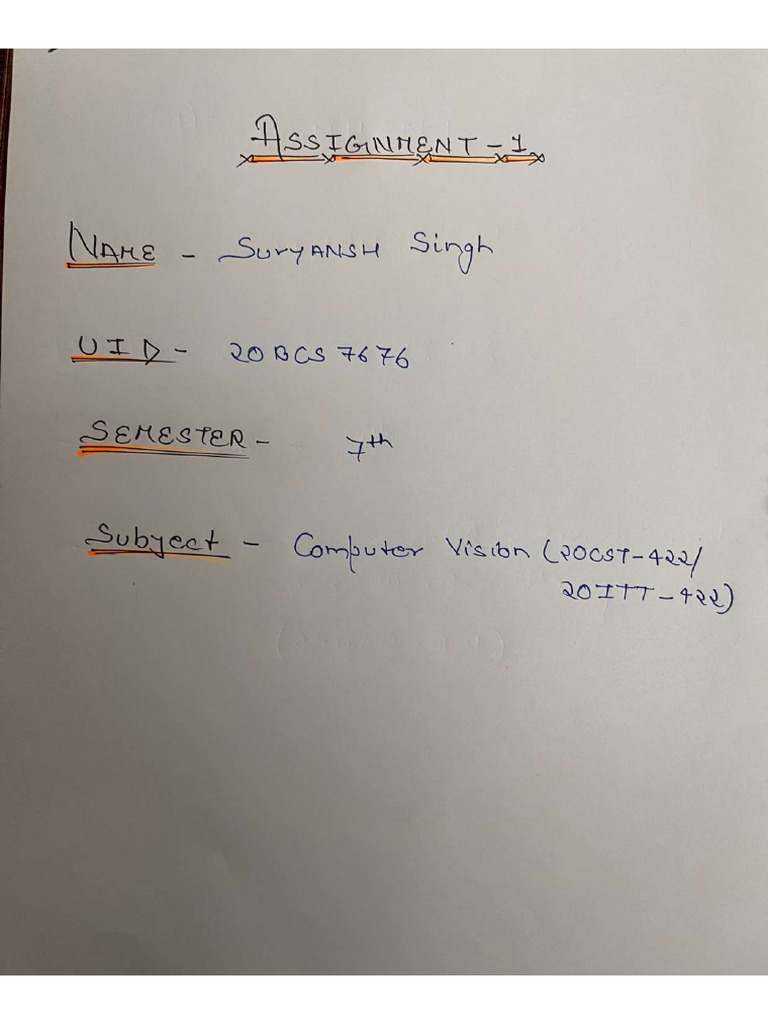 ASSIGNMENT-1
NAME - SuryANSH Singh
UID - 20BCS7676
SEMESTER - 7th
Subject - Computer Vision (20CST-422/
20ITT-422)